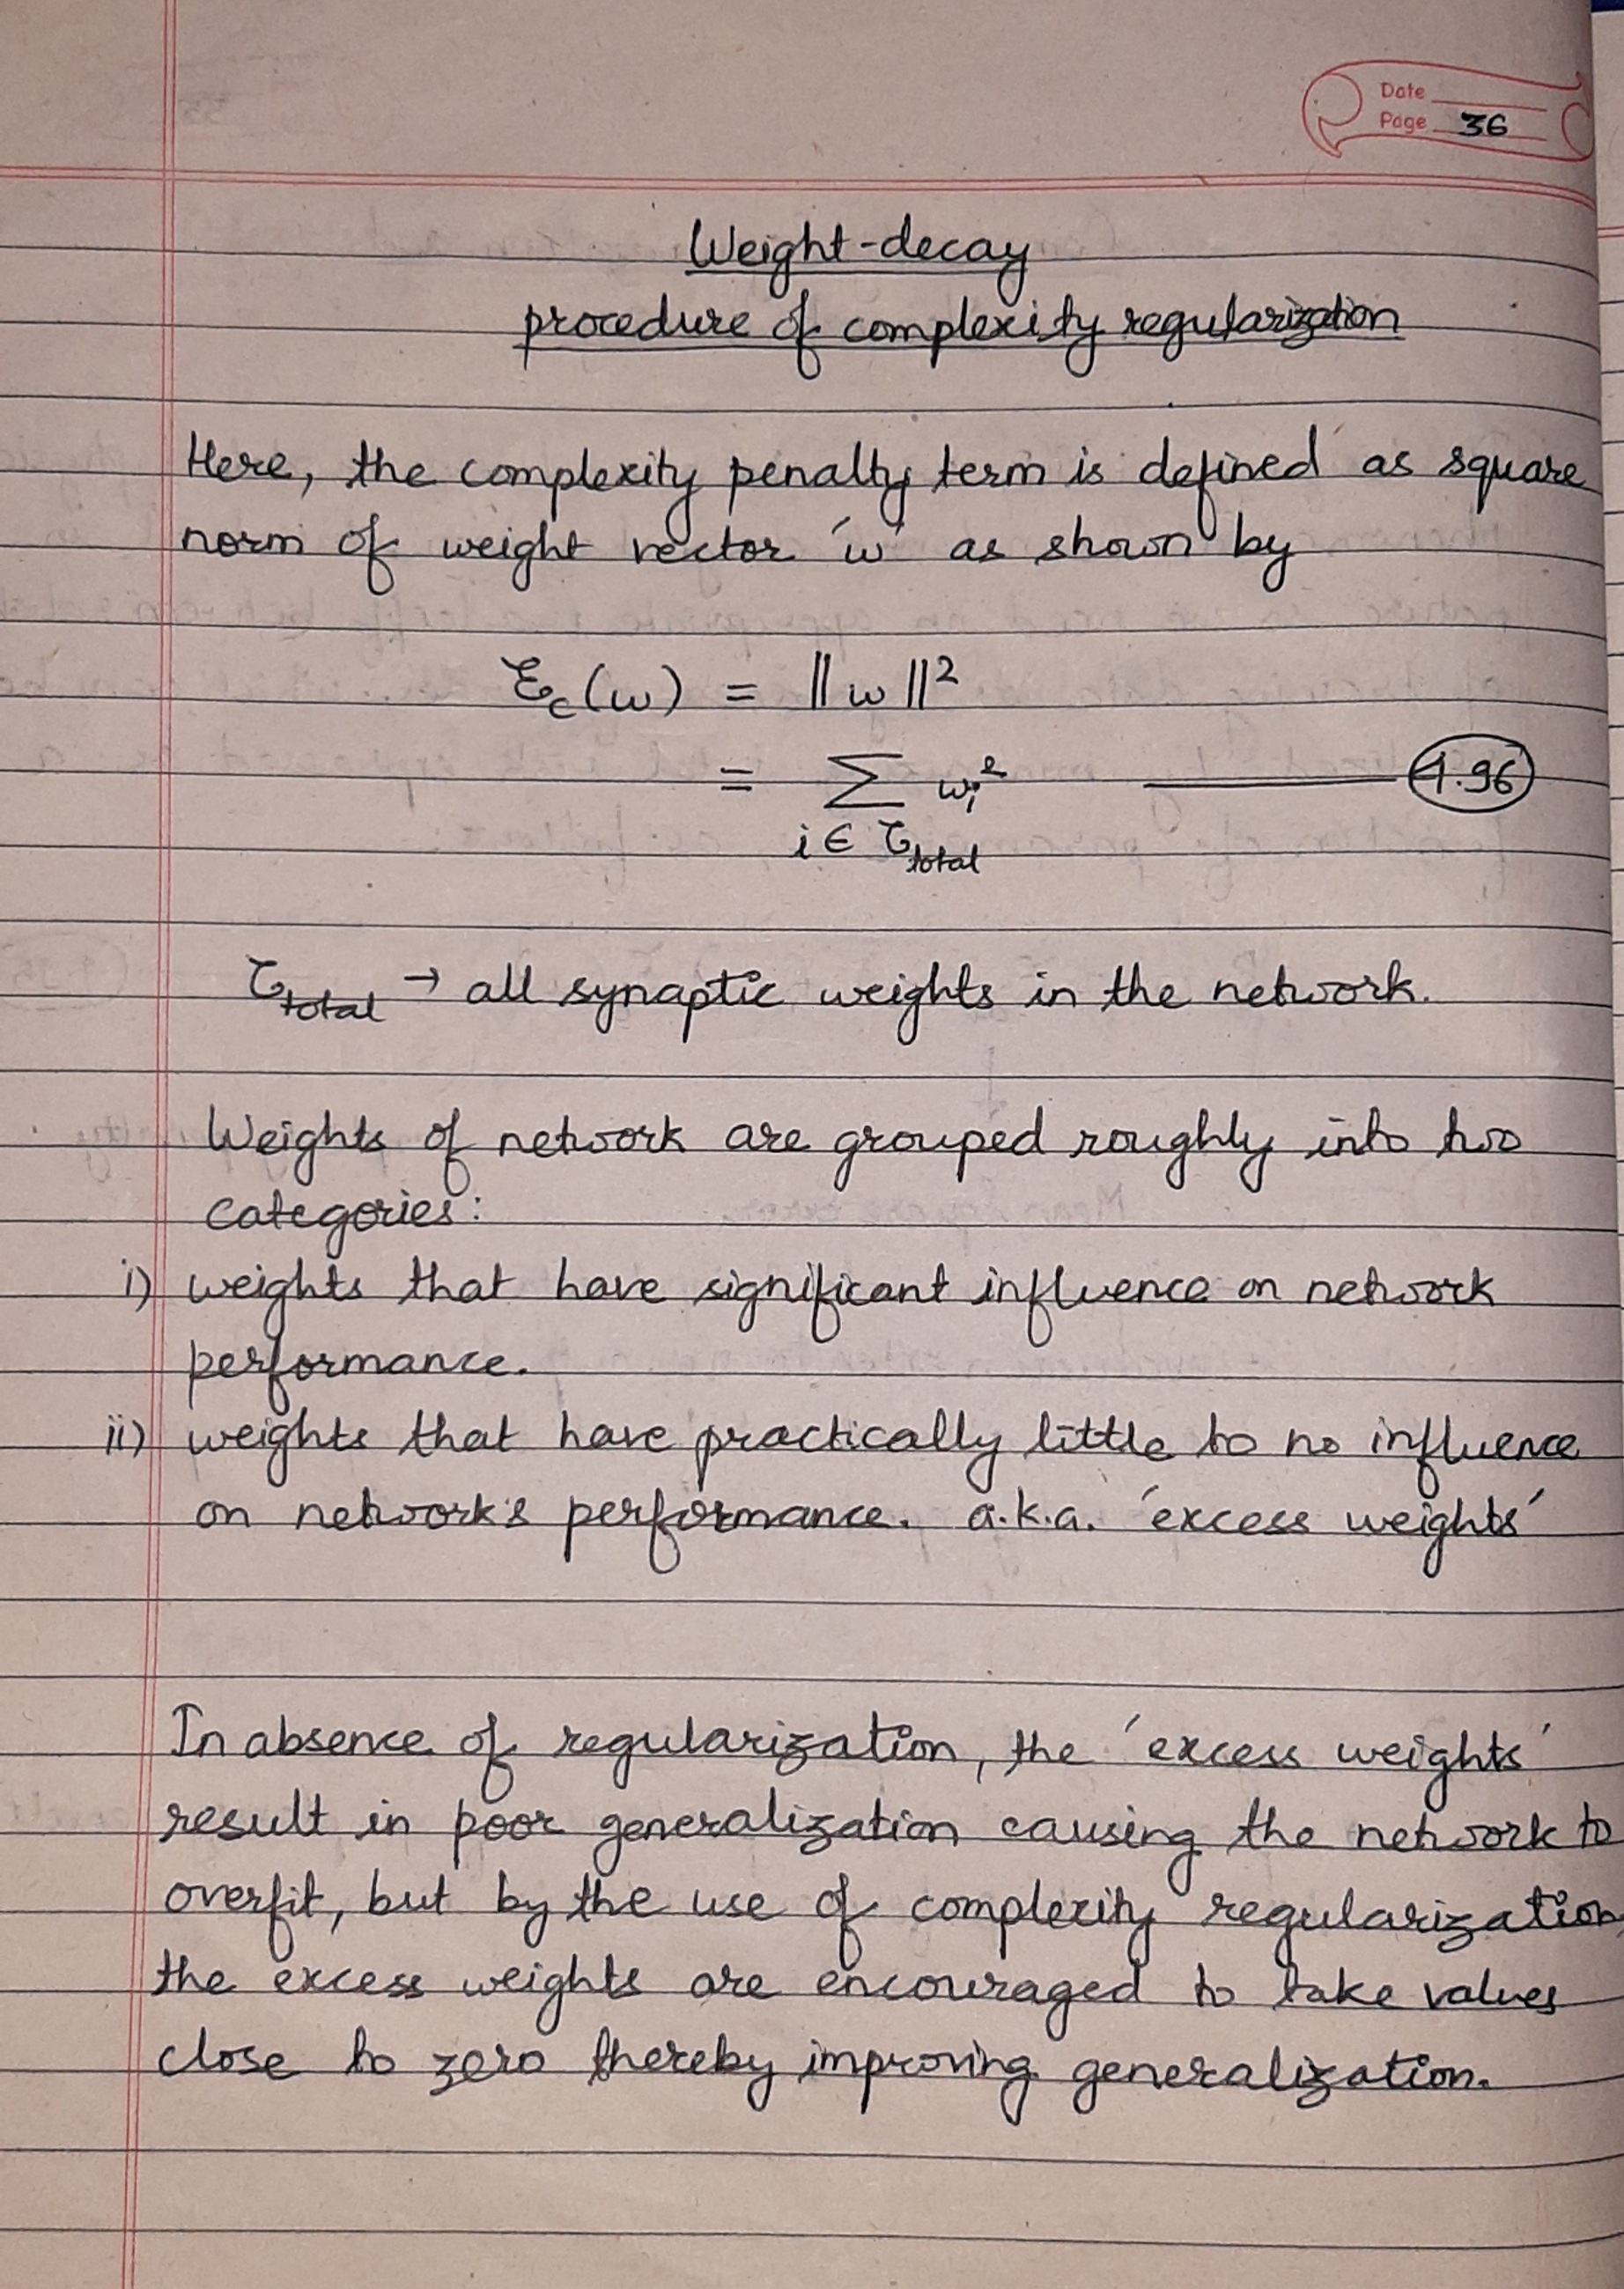 Date
Page 36
Weight-decay
procedure of complexity regularization
Here, the complexity penalty term is defined as square
norm of weight vector 'w' as shown by
ℰc(w) = ||w||²
= Σ wi² ——— 4.96
i ∈ τtotal
τtotal → all synaptic weights in the network.
Weights of network are grouped roughly into two
categories:
i) weights that have significant influence on network
performance.
ii) weights that have practically little to no influence
on network's performance. a.k.a. 'excess weights'
In absence of regularization, the 'excess weights'
result in poor generalization causing the network to
overfit, but by the use of complexity regularization,
the excess weights are encouraged to take values
close to zero thereby improving generalization.